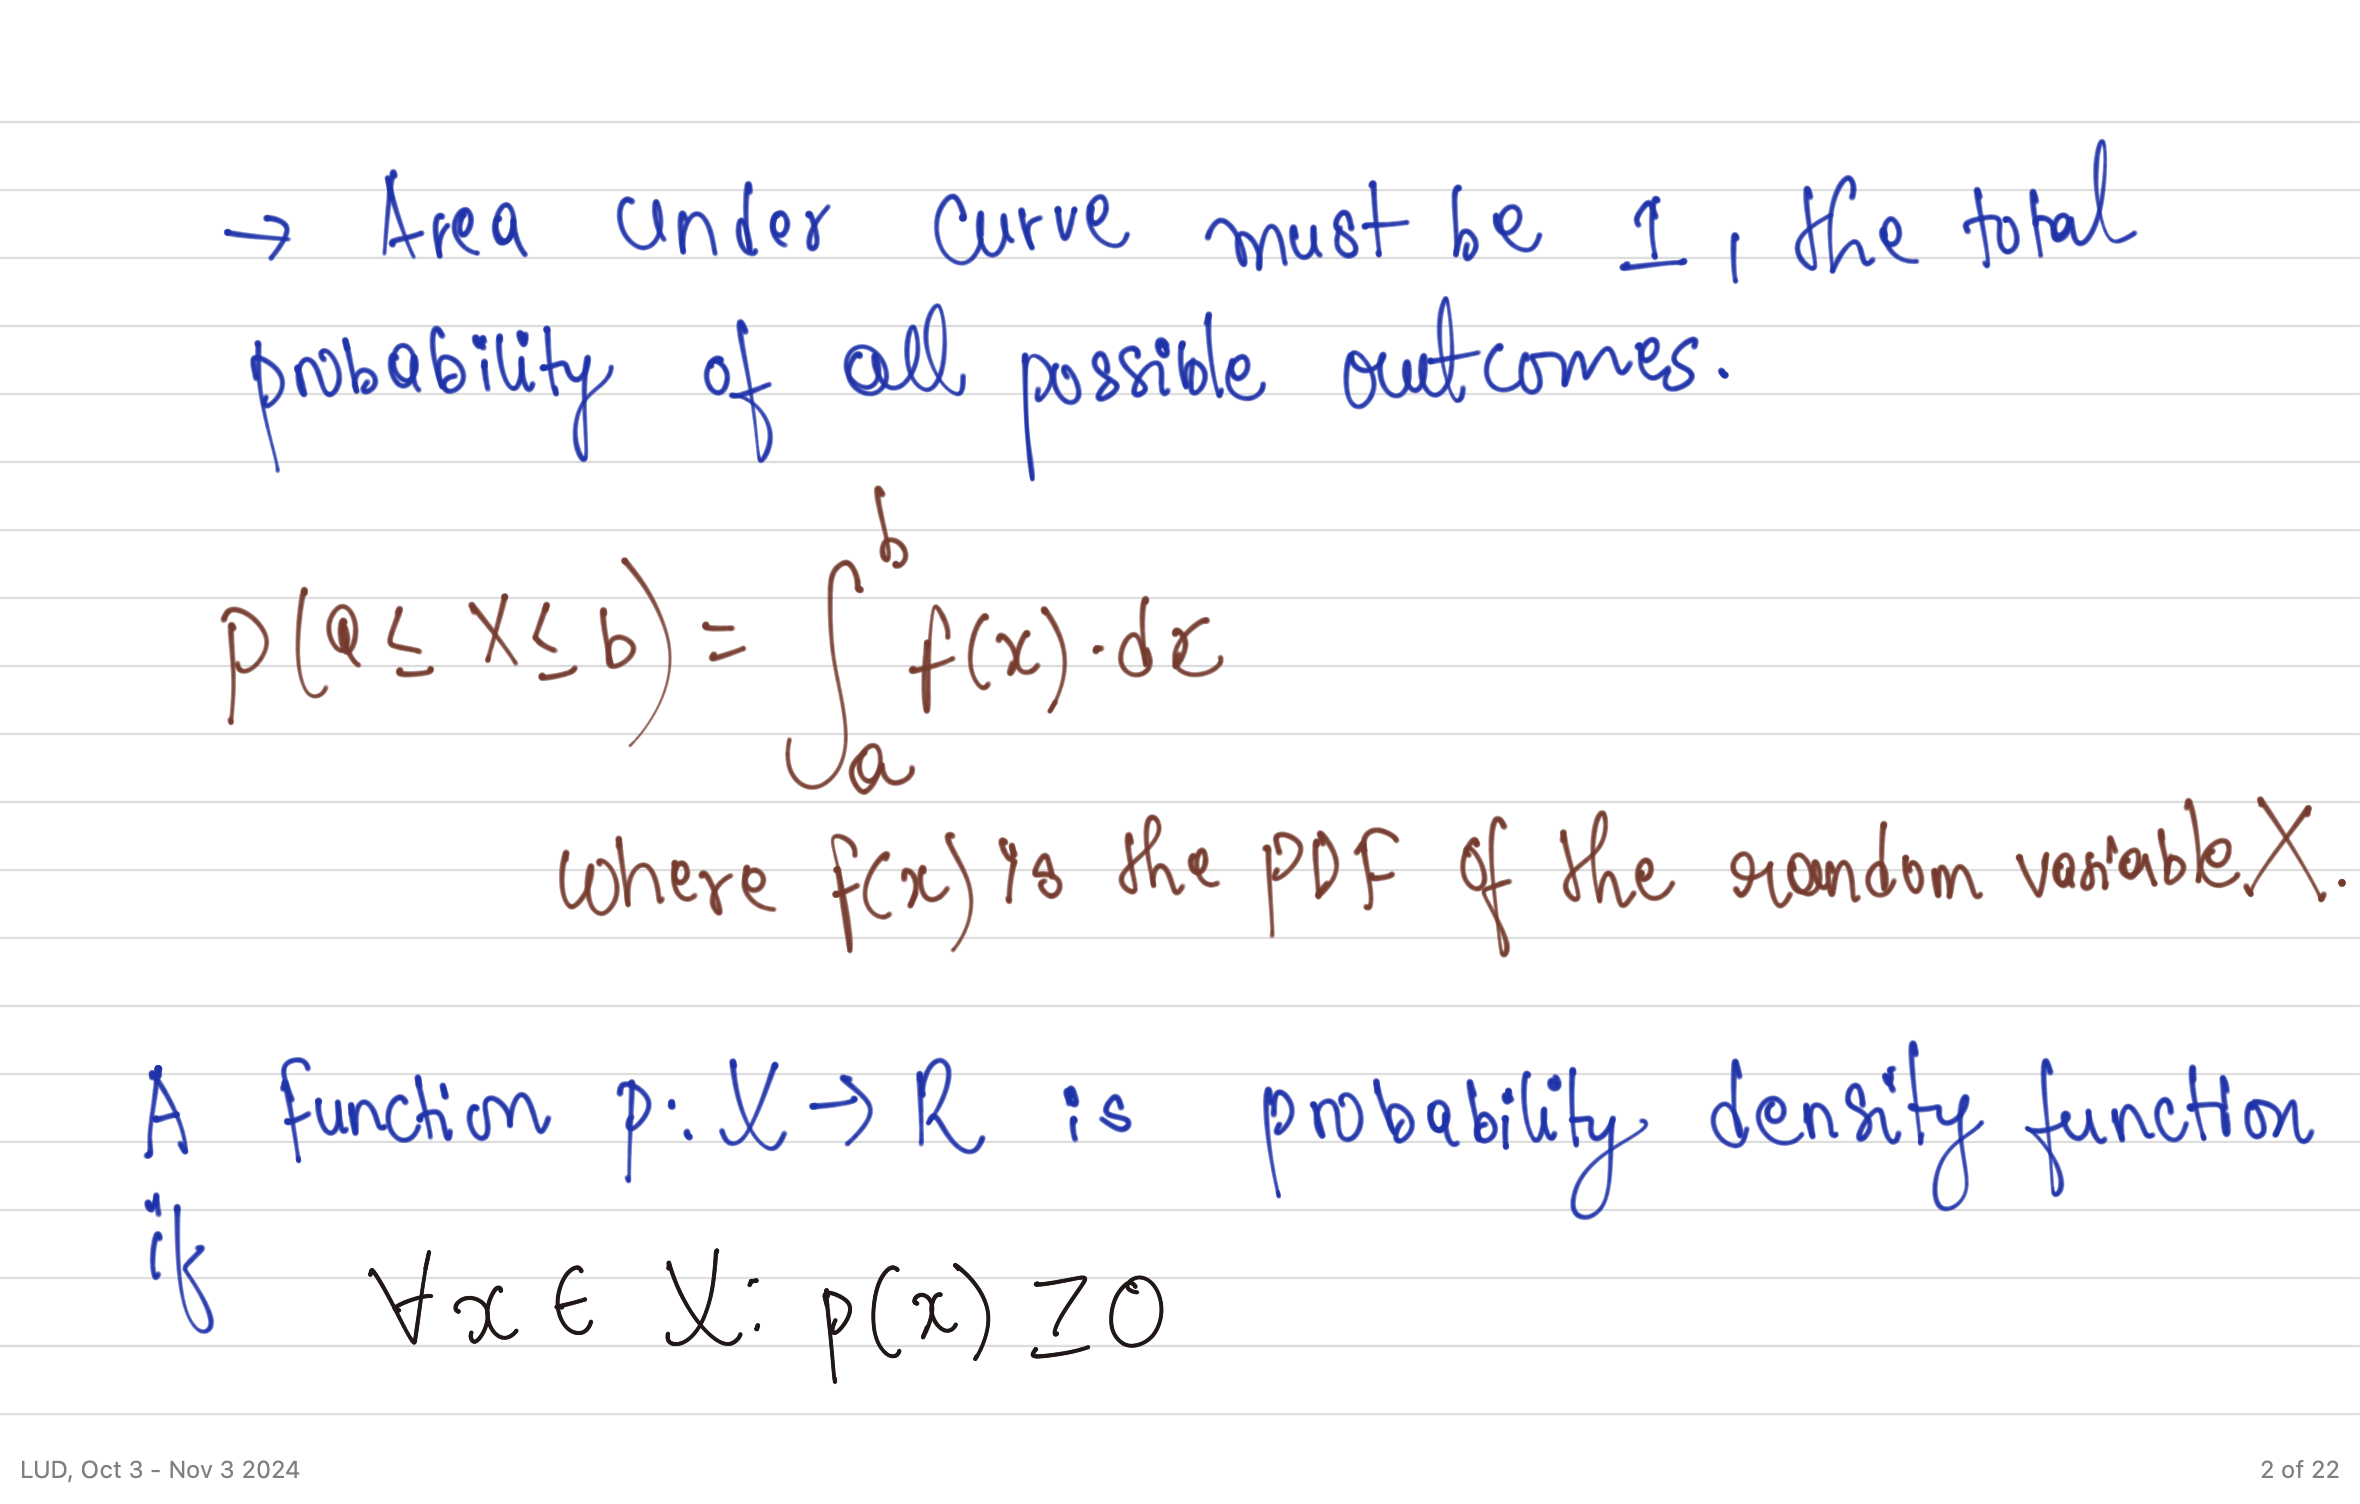 → Area under curve must be 1, the total
probability of all possible outcomes.
p(a ≤ X ≤ b) = ∫_a^b f(x)·dx
where f(x) is the PDF of the random variable X.
A function p: X → R is probability density function
if
∀x ∈ X: p(x) ≥ 0
LUD, Oct 3 - Nov 3 2024
2 of 22